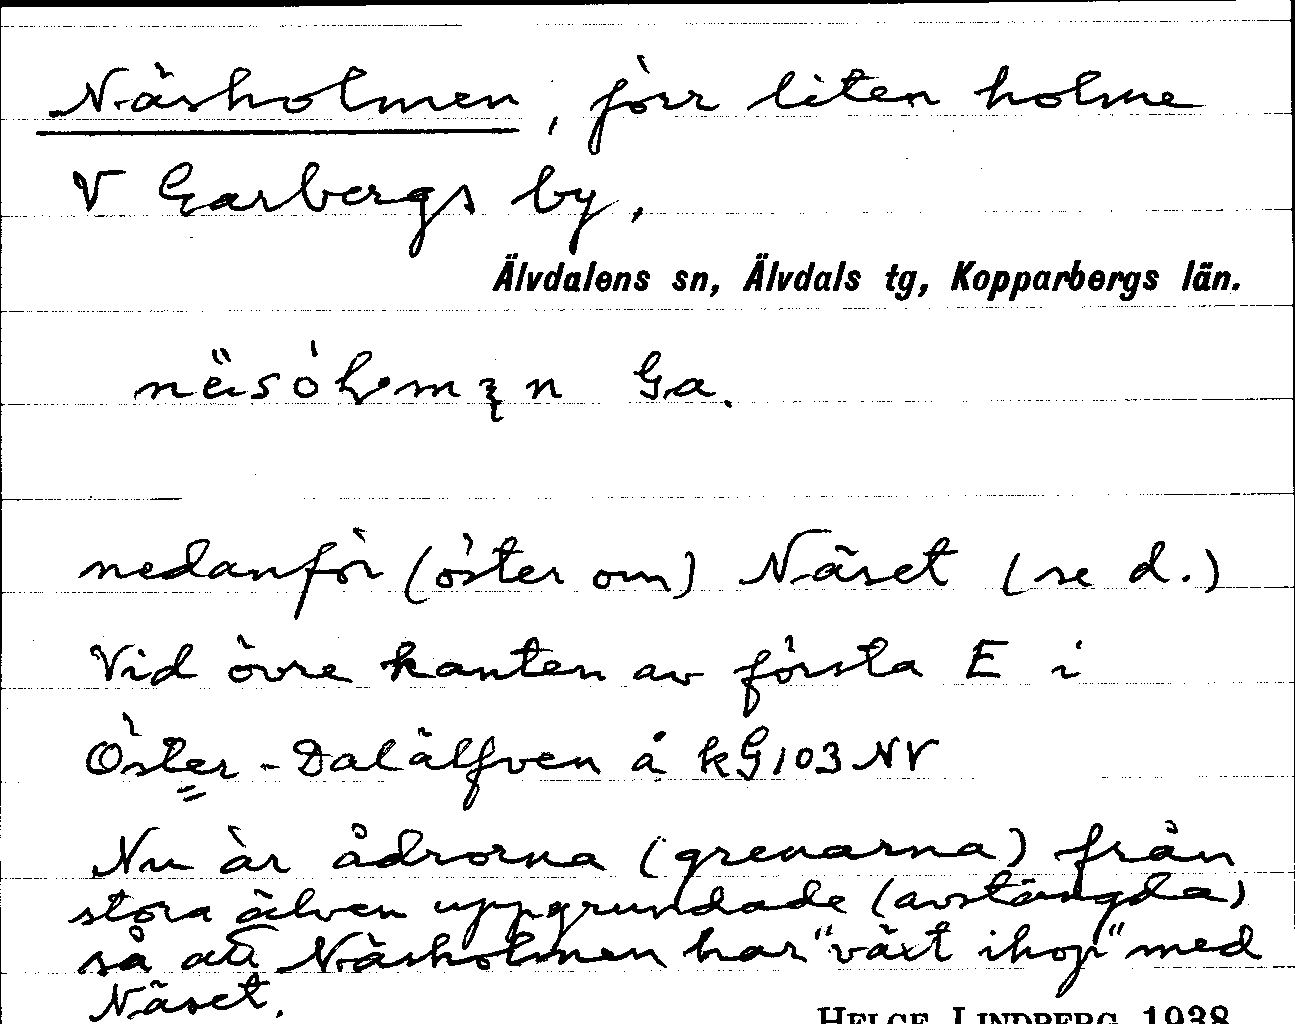 Näsholmen, förr liten holme
V Garbergs by,
Älvdalens sn, Älvdals tg, Kopparbergs län.
Ga.
nedanför (öster om) Näset (se d.)
Vid övre kanten av första E i
Öster-Dalälfven å kG103NV
Nu är ådrorna (grenarna) från
stora älven uppgrundade (avstängda)
så att Näsholmen har "växt ihop" med
Näset.
HELGE LINDBERG 1938